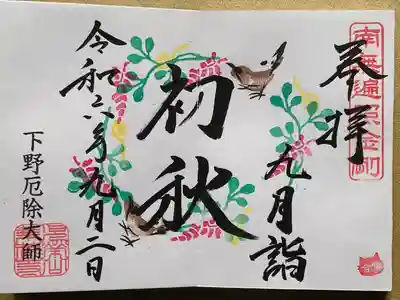 奉拝
南無遍照金剛
九月詣
初秋
令和六年九月二日
下野厄除大師